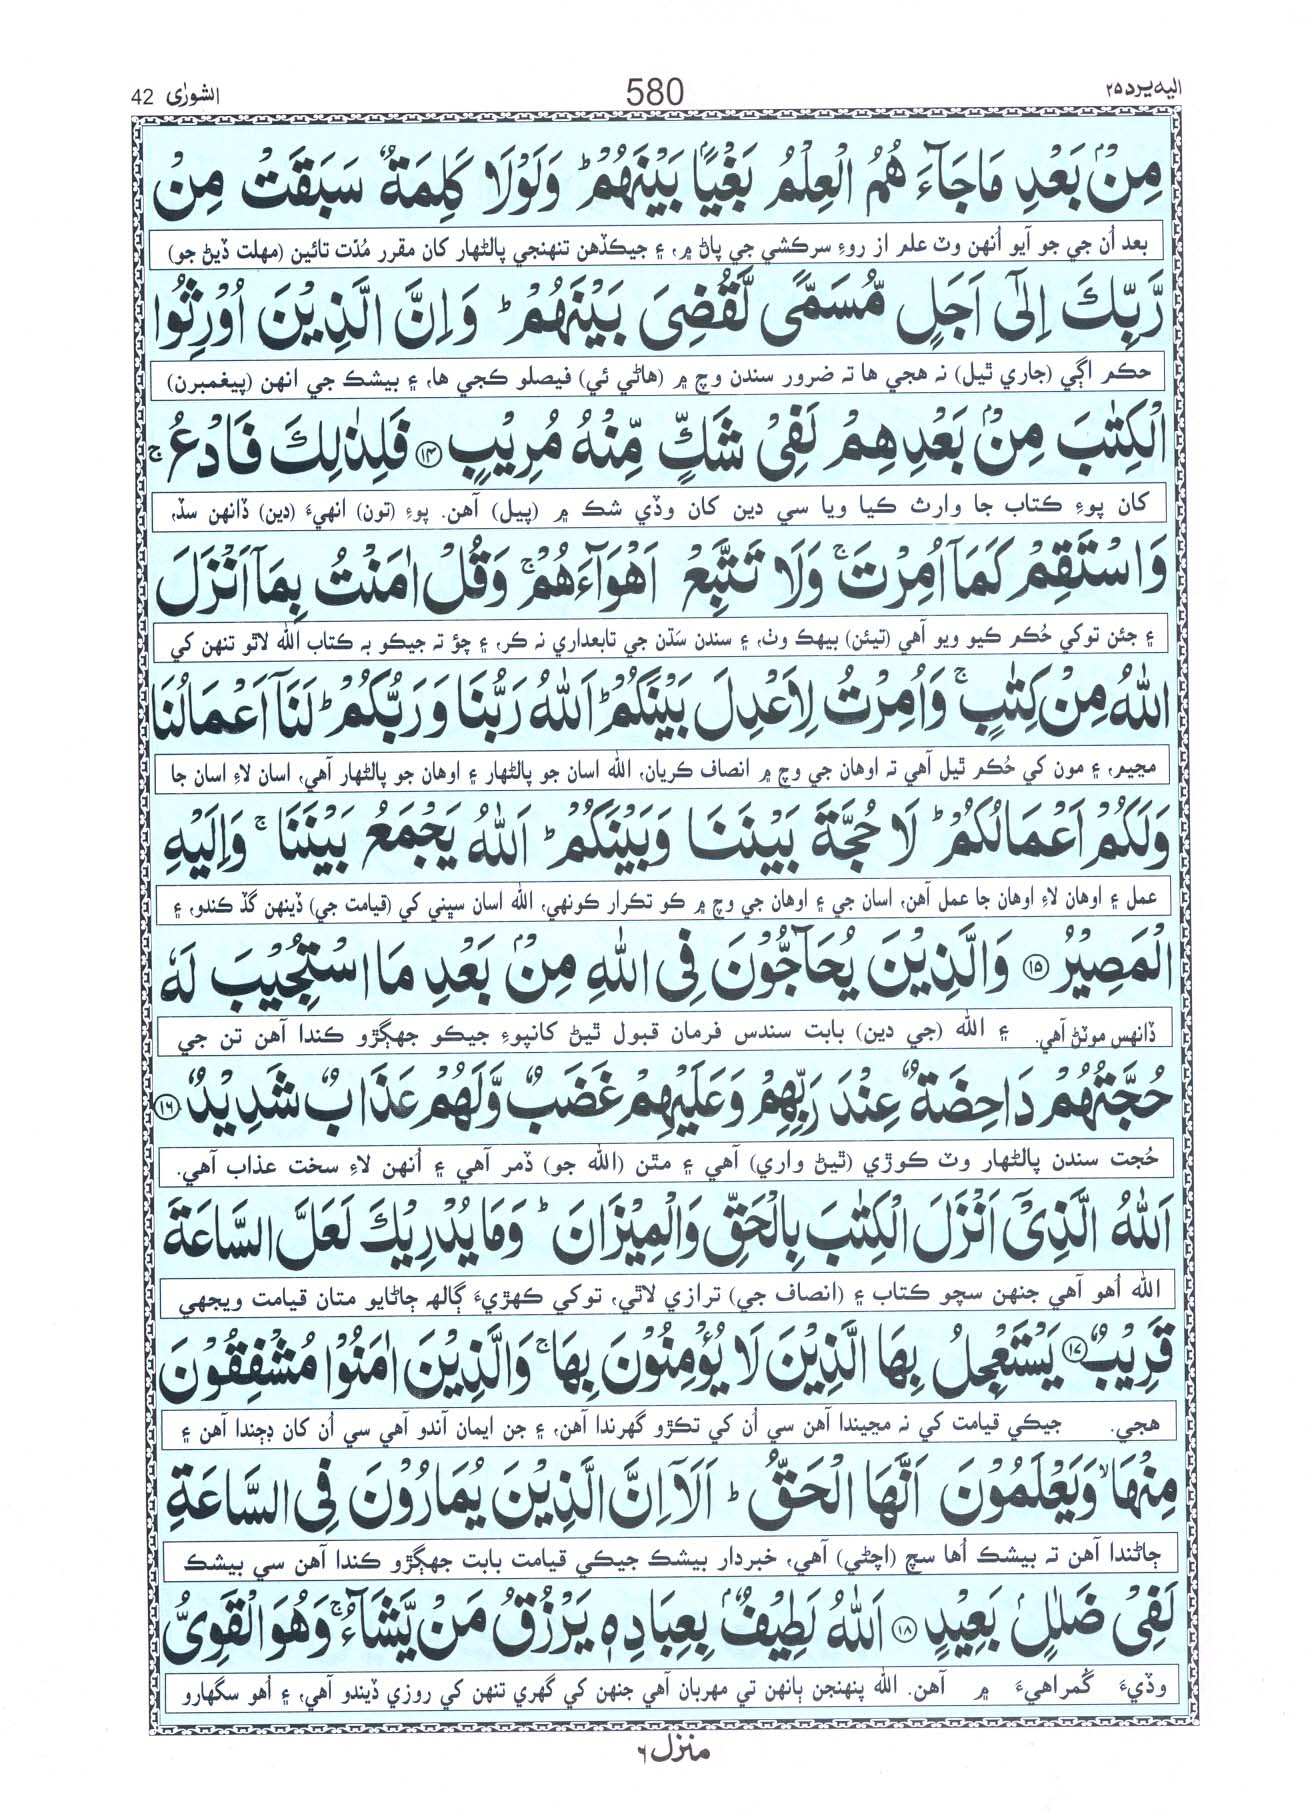 اليه يرد ٢٥
580
الشورٰى 42
مِنْۢ بَعْدِ مَا جَآءَ هُمُ الْعِلْمُ بَغْيًۢا بَيْنَهُمْ ؕ وَلَوْلَا كَلِمَةٌ سَبَقَتْ مِنْ
بعد اُن جي جو آيو اُنهن وٽ علم از روءِ سرڪشي جي پاڻ ۾، ۽ جيڪڏهن تنهنجي پالڻهار کان مقرر مُدّت تائين (مهلت ڏيڻ جو)
رَّبِّكَ اِلٰٓى اَجَلٍ مُّسَمًّى لَّقُضِىَ بَيْنَهُمْ ؕ وَاِنَّ الَّذِيْنَ اُوْرِثُوا
حڪم اڳي (جاري ٿيل) نه هجي ها ته ضرور سندن وچ ۾ (هاڻي ئي) فيصلو ڪجي ها، ۽ بيشڪ جي انهن (پيغمبرن)
الْكِتٰبَ مِنْۢ بَعْدِهِمْ لَفِىْ شَكٍّ مِّنْهُ مُرِيْبٍ ﴿۱۴﴾ فَلِذٰلِكَ فَادْعُ ۚ
کان پوءِ ڪتاب جا وارث ڪيا ويا سي دين کان وڏي شڪ ۾ (پيل) آهن. پوءِ (تون) انهيءَ (دين) ڏانهن سڏ،
وَاسْتَقِمْ كَمَآ اُمِرْتَ ۚ وَلَا تَتَّبِعْ اَهْوَآءَهُمْ ۚ وَقُلْ اٰمَنْتُ بِمَآ اَنْزَلَ
۽ جئن توکي حُڪم ڪيو ويو آهي (تيئن) بيهڪ وٺ، ۽ سندن سَڌن جي تابعداري نه ڪر، ۽ چؤ ته جيڪو به ڪتاب الله لاٿو تنهن کي
اللّٰهُ مِنْ كِتٰبٍ ۚ وَاُمِرْتُ لِاَعْدِلَ بَيْنَكُمْ ؕ اَللّٰهُ رَبُّنَا وَرَبُّكُمْ ؕ لَنَآ اَعْمَالُنَا
مڃيم، ۽ مون کي حُڪم ٿيل آهي ته اوهان جي وچ ۾ انصاف ڪريان، الله اسان جو پالڻهار ۽ اوهان جو پالڻهار آهي، اسان لاءِ اسان جا
وَلَكُمْ اَعْمَالُكُمْ ؕ لَا حُجَّةَ بَيْنَنَا وَبَيْنَكُمْ ؕ اَللّٰهُ يَجْمَعُ بَيْنَنَا ۚ وَاِلَيْهِ
عمل ۽ اوهان لاءِ اوهان جا عمل آهن، اسان جي ۽ اوهان جي وچ ۾ ڪو تڪرار ڪونهي، الله اسان سڀني کي (قيامت جي) ڏينهن گڏ ڪندو، ۽
الْمَصِيْرُ ﴿۱۵﴾ وَالَّذِيْنَ يُحَآجُّوْنَ فِى اللّٰهِ مِنْۢ بَعْدِ مَا اسْتُجِيْبَ لَهٗ
ڏانهس موٽڻ آهي. ۽ الله (جي دين) بابت سندس فرمان قبول ٿيڻ کانپوءِ جيڪو جهڳڙو ڪندا آهن تن جي
حُجَّتُهُمْ دَاحِضَةٌ عِنْدَ رَبِّهِمْ وَعَلَيْهِمْ غَضَبٌ وَّلَهُمْ عَذَابٌ شَدِيْدٌ ﴿۱۶﴾
حُجت سندن پالڻهار وٽ ڪوڙي (ٿيڻ واري) آهي ۽ مٿن (الله جو) ڏمر آهي ۽ اُنهن لاءِ سخت عذاب آهي.
اَللّٰهُ الَّذِىْٓ اَنْزَلَ الْكِتٰبَ بِالْحَقِّ وَالْمِيْزَانَ ؕ وَمَا يُدْرِيْكَ لَعَلَّ السَّاعَةَ
الله اُهو آهي جنهن سچو ڪتاب ۽ (انصاف جي) ترازي لاٿي، توکي ڪهڙيءَ ڳالهہ ڄاڻايو متان قيامت ويجهي
قَرِيْبٌ ﴿۱۷﴾ يَسْتَعْجِلُ بِهَا الَّذِيْنَ لَا يُؤْمِنُوْنَ بِهَا ۚ وَالَّذِيْنَ اٰمَنُوْا مُشْفِقُوْنَ
هجي. جيڪي قيامت کي نه مڃيندا آهن سي اُن کي تڪڙو گهرندا آهن، ۽ جن ايمان آندو آهي سي اُن کان ڊڄندا آهن ۽
مِنْهَا ۙ وَيَعْلَمُوْنَ اَنَّهَا الْحَقُّ ؕ اَلَآ اِنَّ الَّذِيْنَ يُمَارُوْنَ فِى السَّاعَةِ
ڄاڻندا آهن ته بيشڪ اُها سچ (اچڻي) آهي، خبردار بيشڪ جيڪي قيامت بابت جهڳڙو ڪندا آهن سي بيشڪ
لَفِىْ ضَلٰلٍۢ بَعِيْدٍ ﴿۱۸﴾ اَللّٰهُ لَطِيْفٌۢ بِعِبَادِهٖ يَرْزُقُ مَنْ يَّشَآءُ ۚ وَهُوَ الْقَوِىُّ
وڏيءَ گُمراهيءَ ۾ آهن. الله پنهنجن ٻانهن تي مهربان آهي جنهن کي گهري تنهن کي روزي ڏيندو آهي، ۽ اُهو سگهارو
منزل ٦